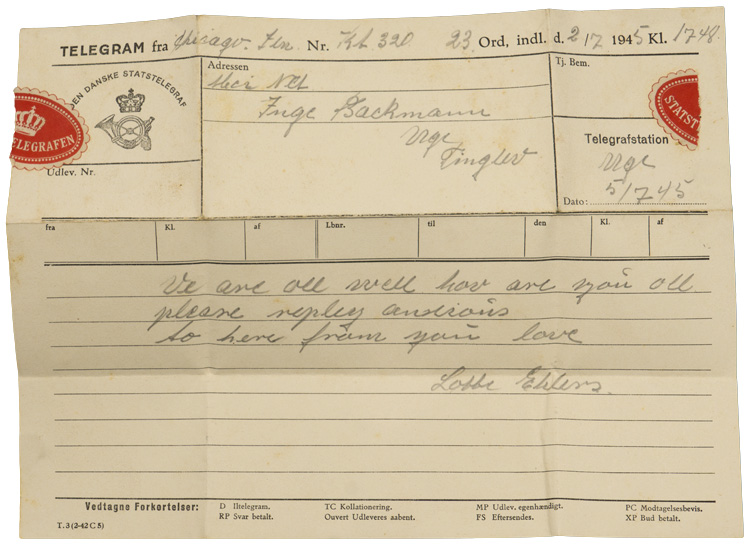 TELEGRAM fra Chicago. Nr. Kb 320 23 Ord, indl. d. 2/7 1945 Kl. 1748.
DEN DANSKE STATSTELEGRAF
TELEGRAFEN
Udlev. Nr.
Adressen
Inge Backmann
Uge
Tinglev
Tj. Bem.
STATST
Telegrafstation
Uge
Dato: 5/7 45
fra Kl. af Lbnr. til den Kl. af
Ve are oll well hov are you oll
please repley ansious
to here from you love
Lotte Ehlers.
Vedtagne Forkortelser:
D Iltelegram. TC Kollationering. MP Udlev. egenhændigt. PC Modtagelsesbevis.
RP Svar betalt. Ouvert Udleveres aabent. FS Eftersendes. XP Bud betalt.
T. 3 (2-42 C 5)